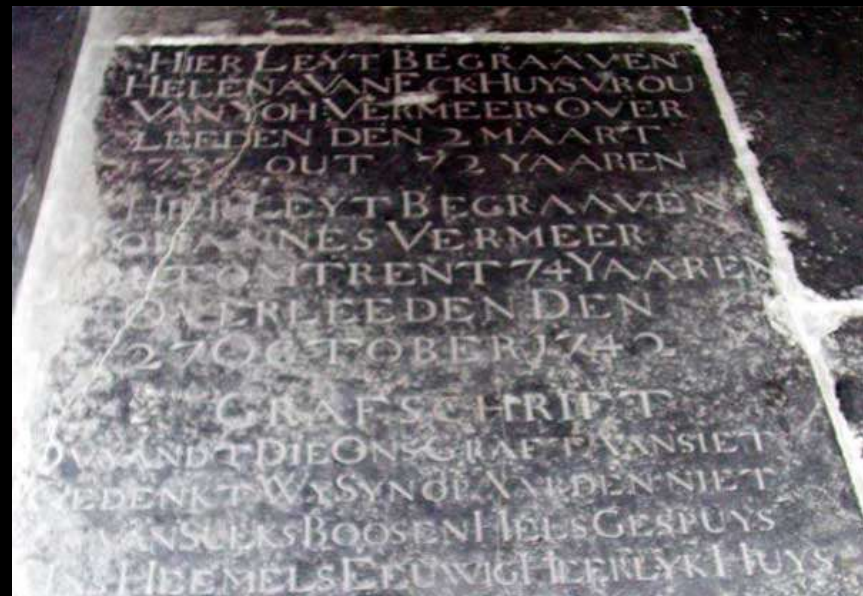 HIER LEYT BEGRAAVEN
HELENA VAN ECK HUYSVROU
VAN YOH: VERMEER · OVER
LEEDEN DEN 2 MAART
OUT 72 YAAREN
HIER LEYT BEGRAAVEN
JOHANNES VERMEER
OUT OMTRENT 74 YAAREN
OVERLEEDEN DEN
27 OCTOBER 1742
GRAFSCHRIFT
DIE ONS GRAFT AANSIET
GEDENKT WY SYN OP AARDEN NIET
VAN SULKS BOOSEN HELS GESPUYS
HEEMELS EEUWIG HEERLYK HUYS